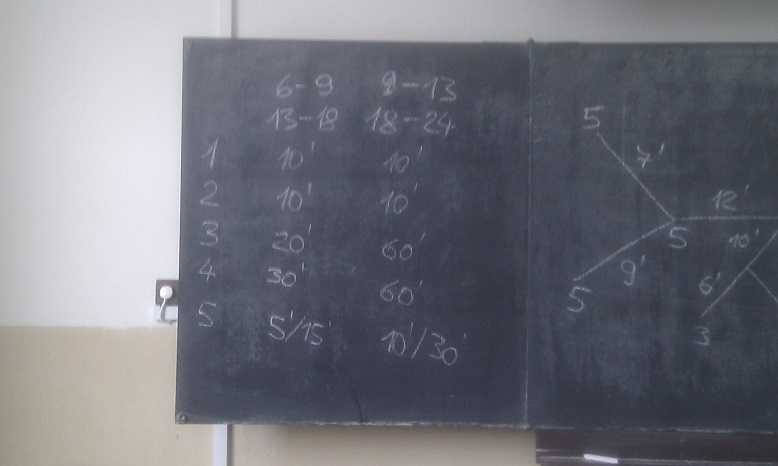 6-9 9-13
13-18 18-24
1 10' 10'
2 10' 10'
3 20' 60'
4 30' 60'
5 5'/15' 10'/30'
5
7'
12'
5
10'
9'
6'
5
3